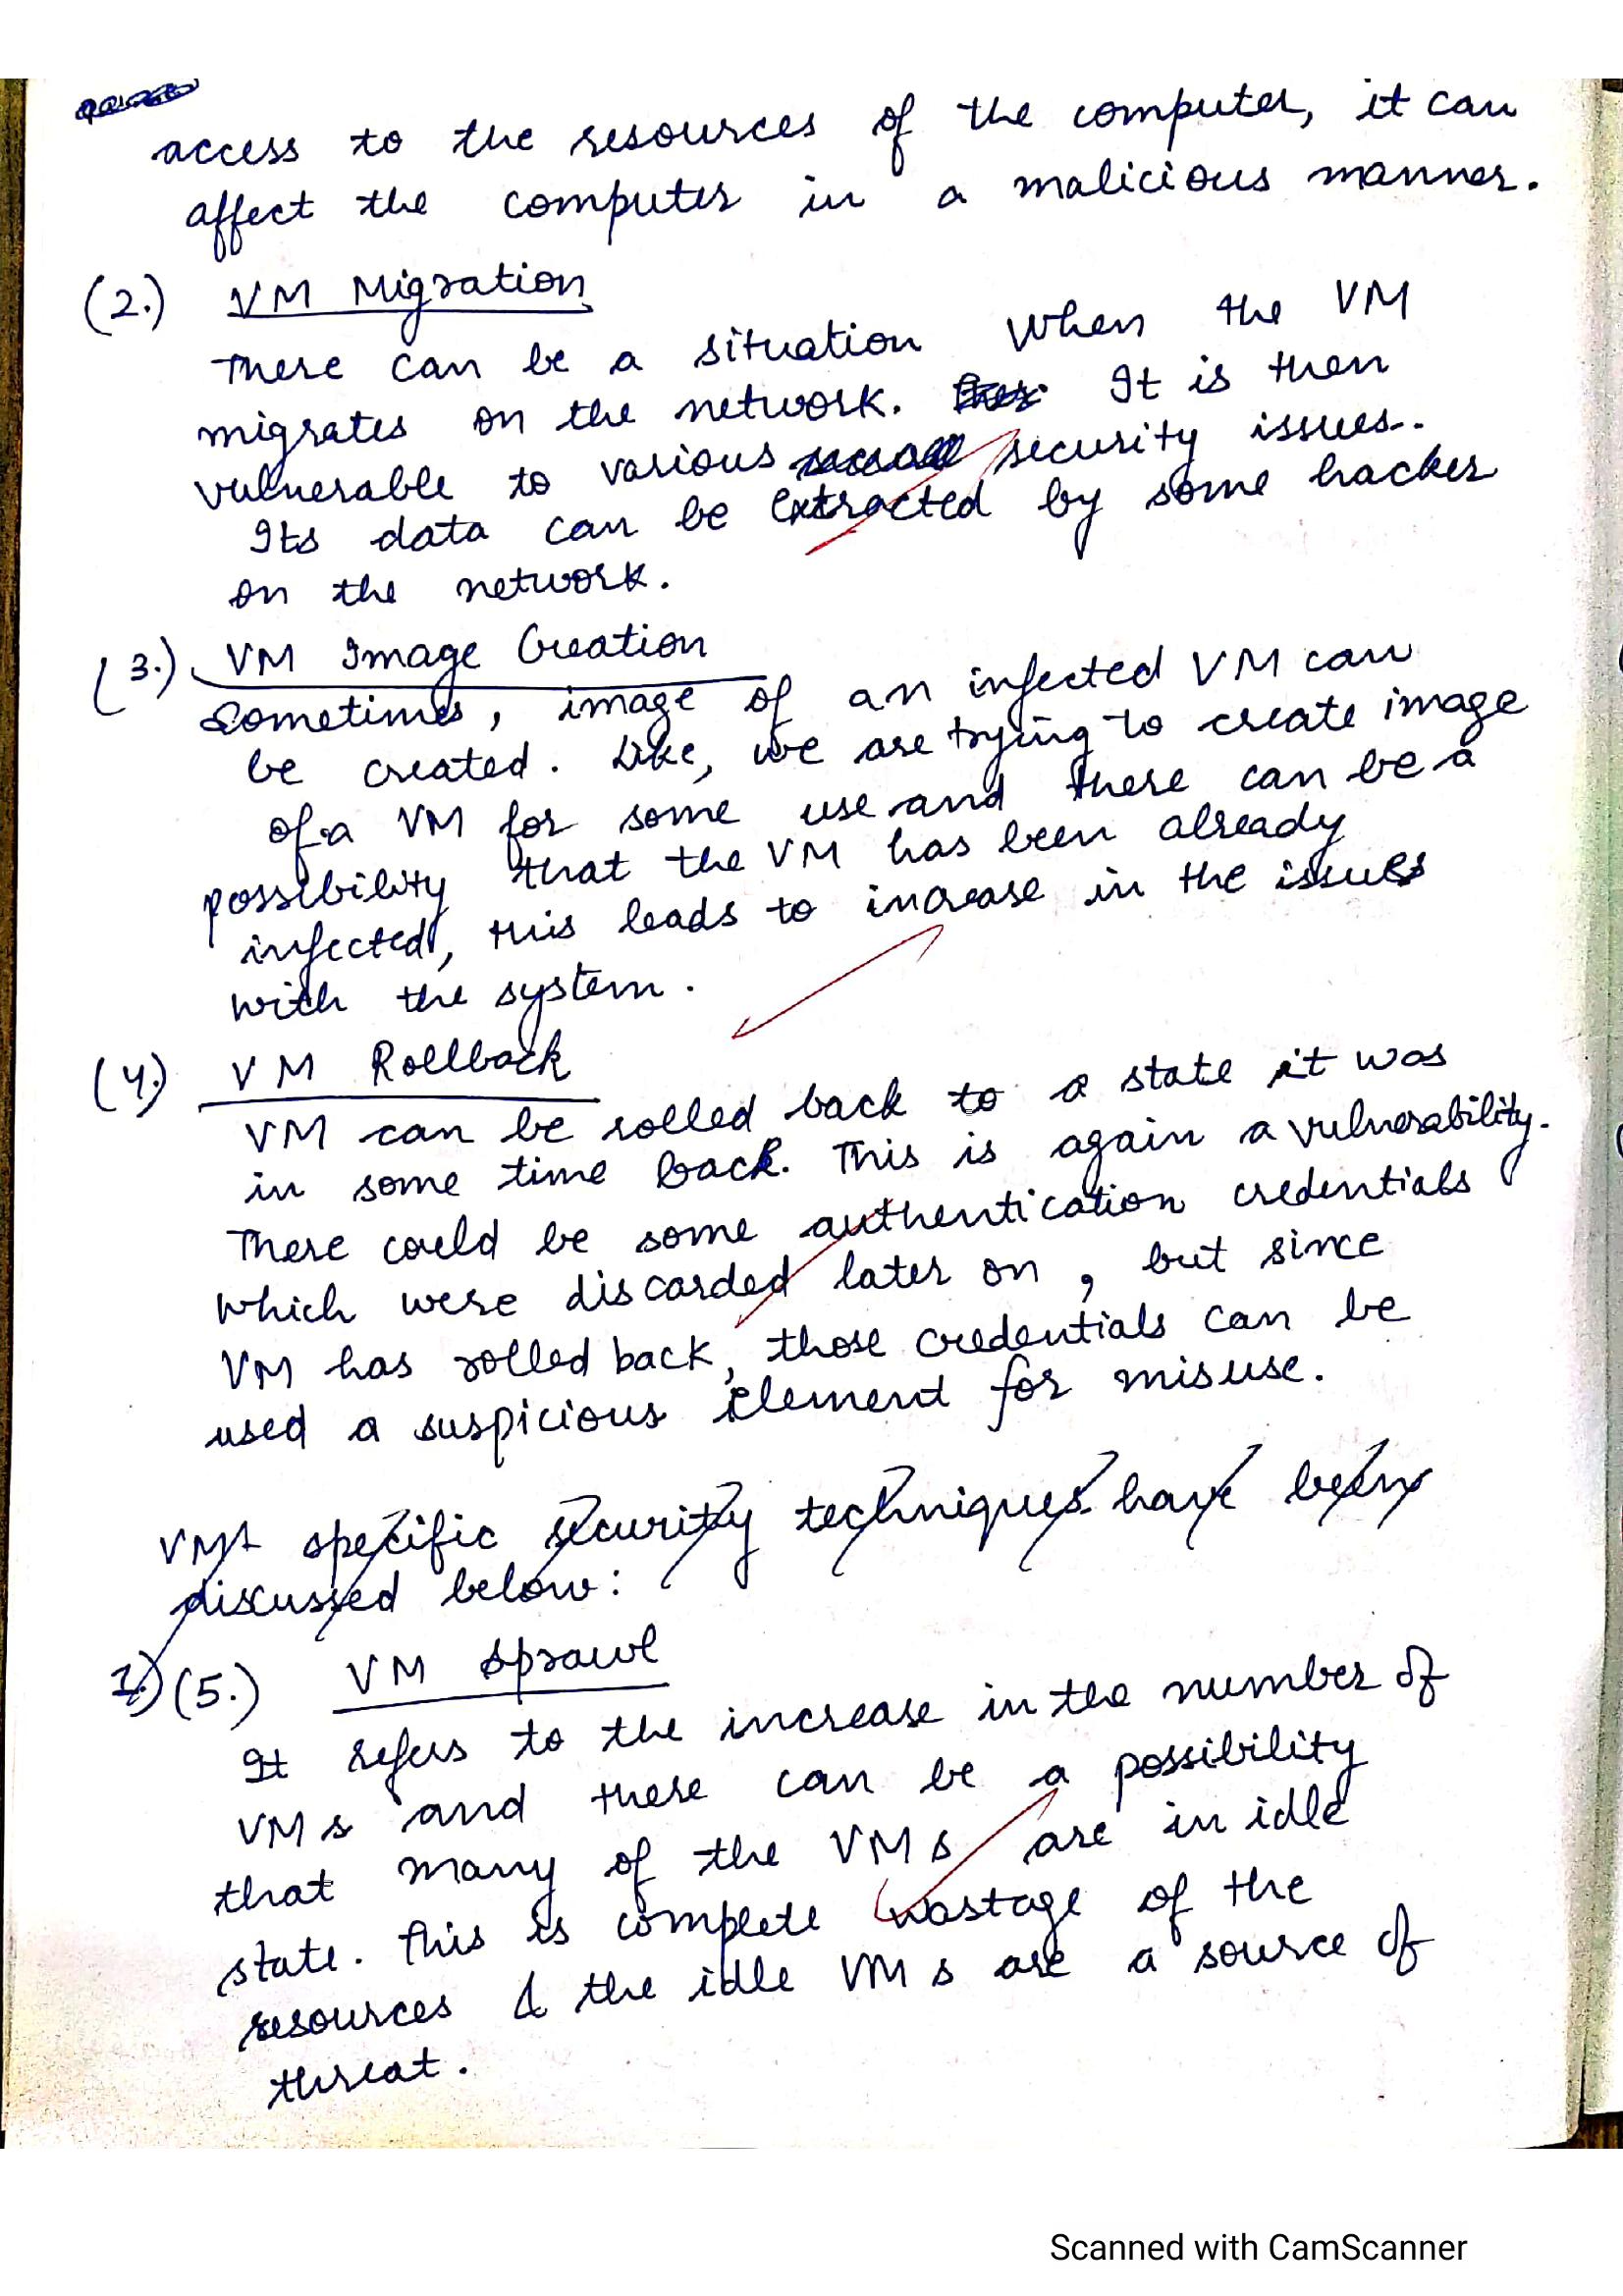 access to the resources of the computer, it can
affect the computer in a malicious manner.
(2.) VM Migration
There can be a situation when the VM
migrates on the network. It is then
vulnerable to various security issues.
Its data can be extracted by some hacker
on the network.
(3.) VM Image Creation
Sometimes, image of an infected VM can
be created. Like, we are trying to create image
of a VM for some use and there can be a
possibility that the VM has been already
infected, this leads to increase in the issues
with the system.
(4.) VM Rollback
VM can be rolled back to a state it was
in some time back. This is again a vulnerability.
There could be some authentication credentials
which were discarded later on, but since
VM has rolled back, those credentials can be
used a suspicious element for misuse.
VM specific security techniques have been
discussed below:
1.) (5.) VM Sprawl
It refers to the increase in the number of
VMs and there can be a possibility
that many of the VMs are in idle
state. This is complete wastage of the
resources & the idle VMs are a source of
threat.
Scanned with CamScanner